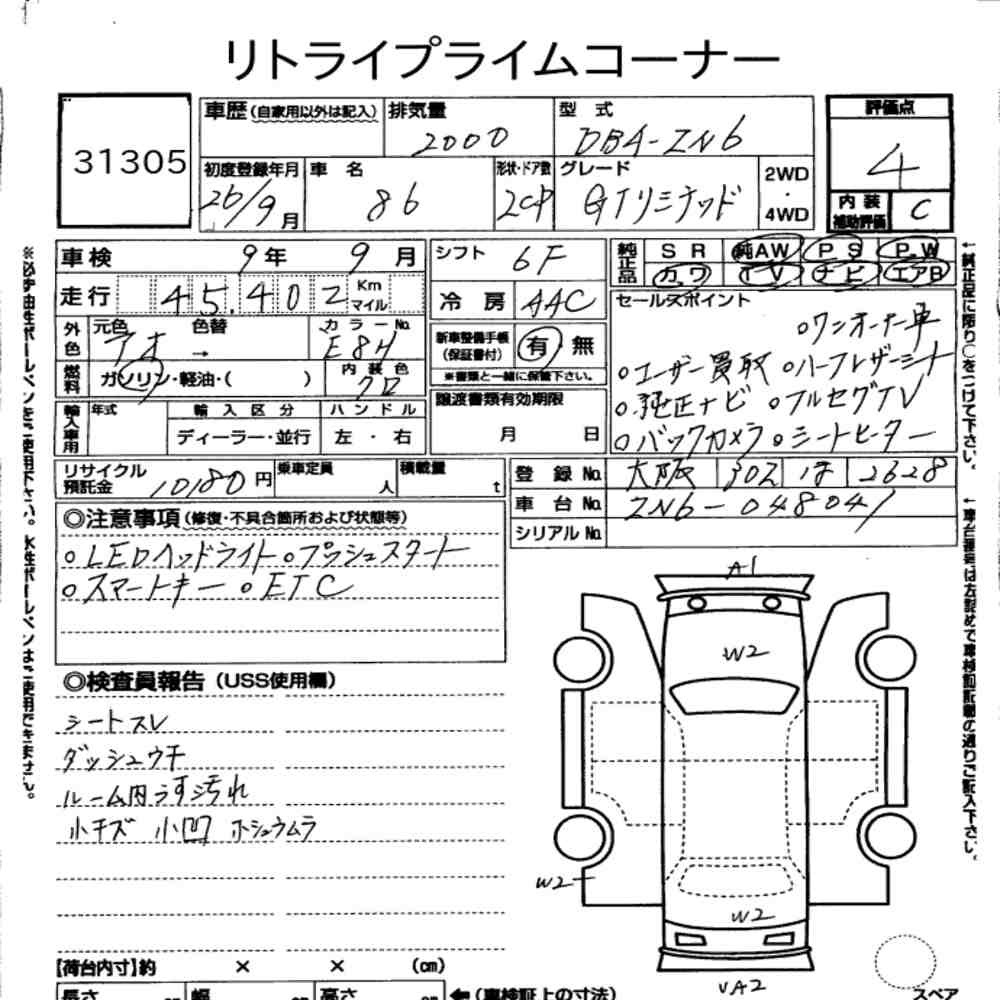 リトライプライムコーナー
31305
車歴(自家用以外は記入) 排気量 2000 型式 DBA-ZN6 評価点 4
初度登録年月 26/9月 車名 86 形状・ドア数 2CP グレード GTリミテッド 2WD・4WD 内装補助評価 C
車検 9年 9月 シフト 6F 純正品 SR 純AW PS PW
カワ TV ナビ エアB
走行 45,402 Km マイル 冷房 AAC セールスポイント
外色 元色 アオ 色替 → カラーNo. E8H 新車整備手帳(保証書付) 有 無
※書類と一緒に保管下さい。
燃料 ガソリン・軽油・( ) 内装色 クロ
○ワンオーナー車
○ユーザー買取 ○ハーフレザーシート
○純正ナビ ○フルセグTV
○バックカメラ ○シートヒーター
輸入車用 年式 輸入区分 ハンドル 譲渡書類有効期限
ディーラー・並行 左・右 月 日
リサイクル預託金 10180円 乗車定員 人 積載量 t 登録No. 大阪 302 は 2628
車台No. ZN6-048041
シリアルNo.
◎注意事項(修復・不具合箇所および状態等)
○LEDヘッドライト○プッシュスタート
○スマートキー ○ETC
◎検査員報告(USS使用欄)
シートスレ
ダッシュウキ
ルーム内うす汚れ
小キズ 小凹 ホシュウムラ
A1
W2
W2
W2
VA2
【荷台内寸】約 × × (cm)
長さ cm 幅 cm 高さ cm ←(車検証上の寸法)
スペア
※必ず油性ボールペンをご使用下さい。水性ボールペンはご使用できません。
←純正品に限り○をつけて下さい。
←車台番号は左詰めで車検証記載の通りご記入下さい。